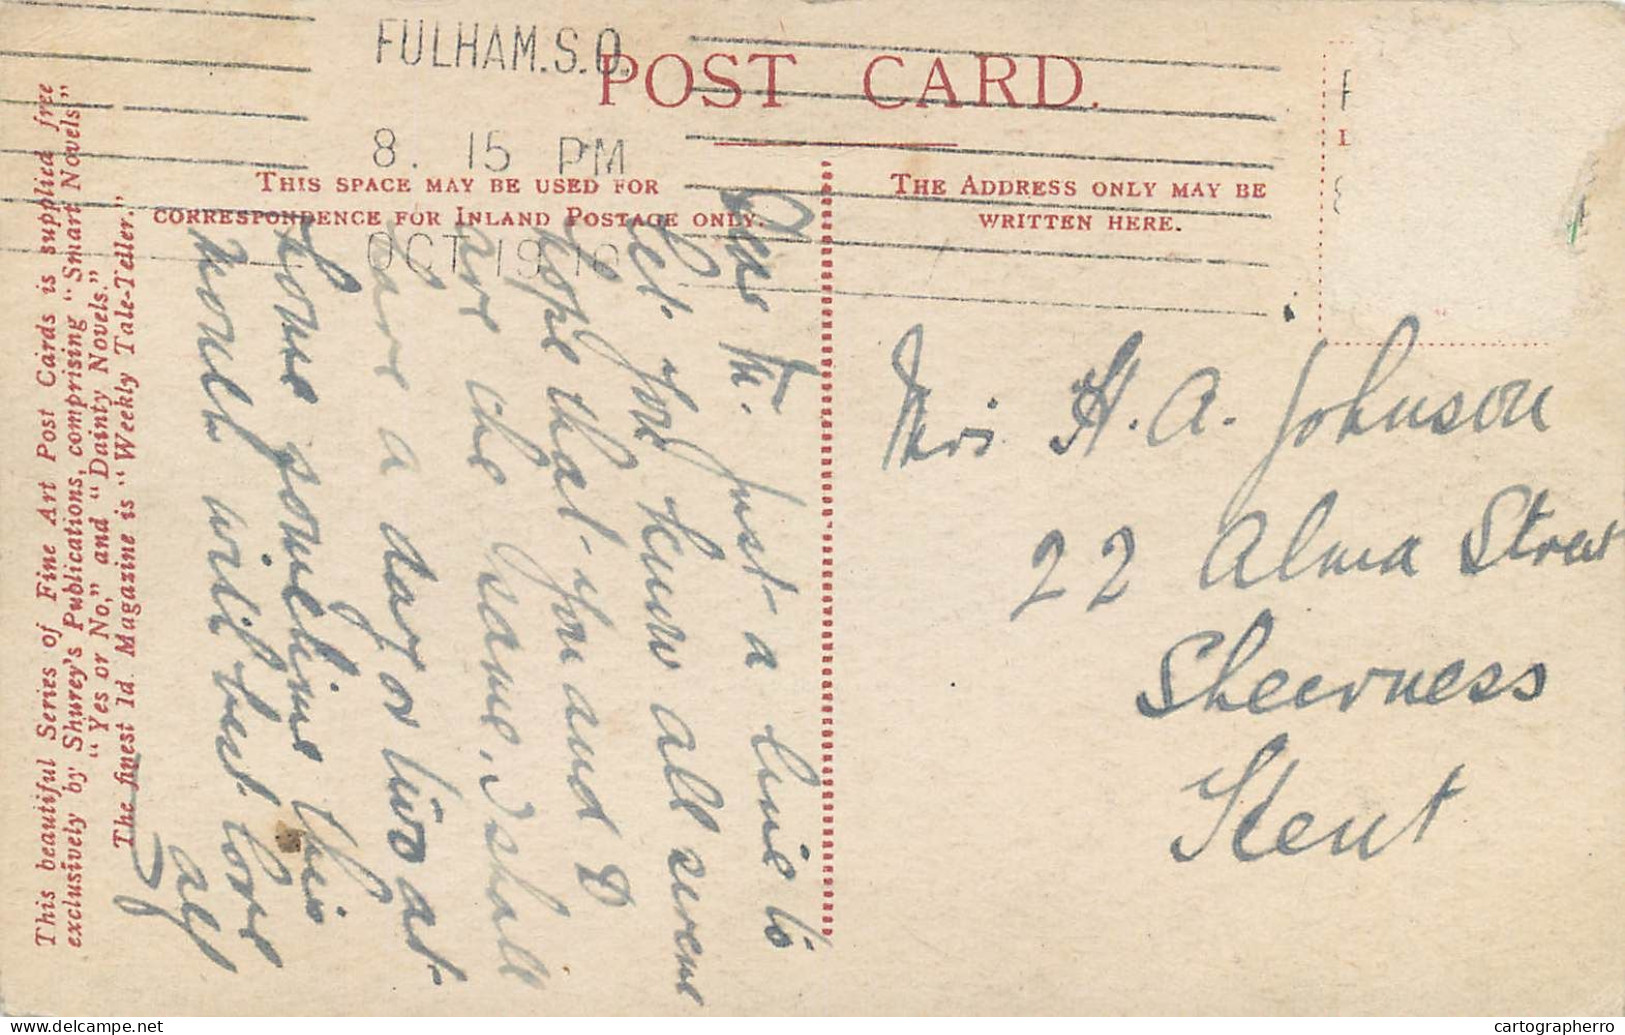 FULHAM.S.O.
8. 15 PM
OCT 19 10
POST CARD.
THIS SPACE MAY BE USED FOR
CORRESPONDENCE FOR INLAND POSTAGE ONLY.
THE ADDRESS ONLY MAY BE
WRITTEN HERE.
This beautiful Series of Fine Art Post Cards is supplied free
exclusively by Shurey's Publications, comprising "Smart Novels,"
"Yes or No," and "Dainty Novels."
The finest 1d. Magazine is "Weekly Tale-Teller."
Dear M. Just a line to
let you know all serene
hope that you and D
are the same, I shall
have a day or two at
home sometime this
month with best love
Mrs H. A. Johnson
22 Alma Street
Sheerness
Kent
cartographerro